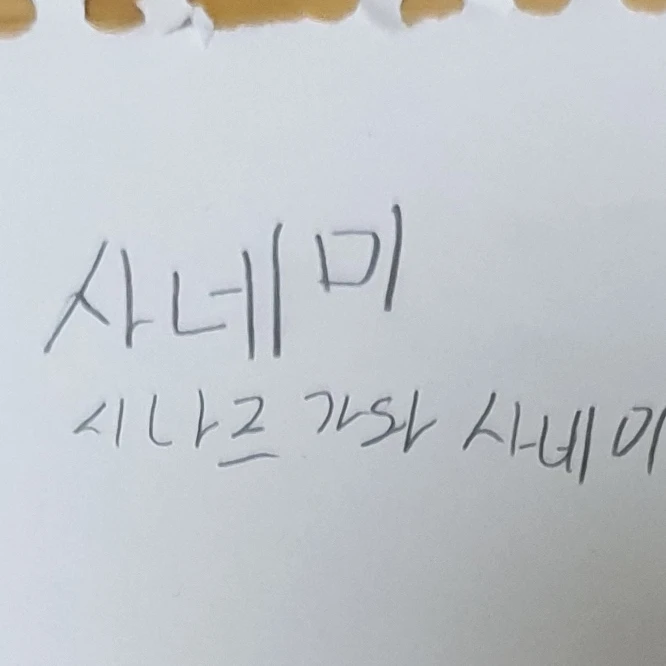 사네미
시나즈 가와 사네미